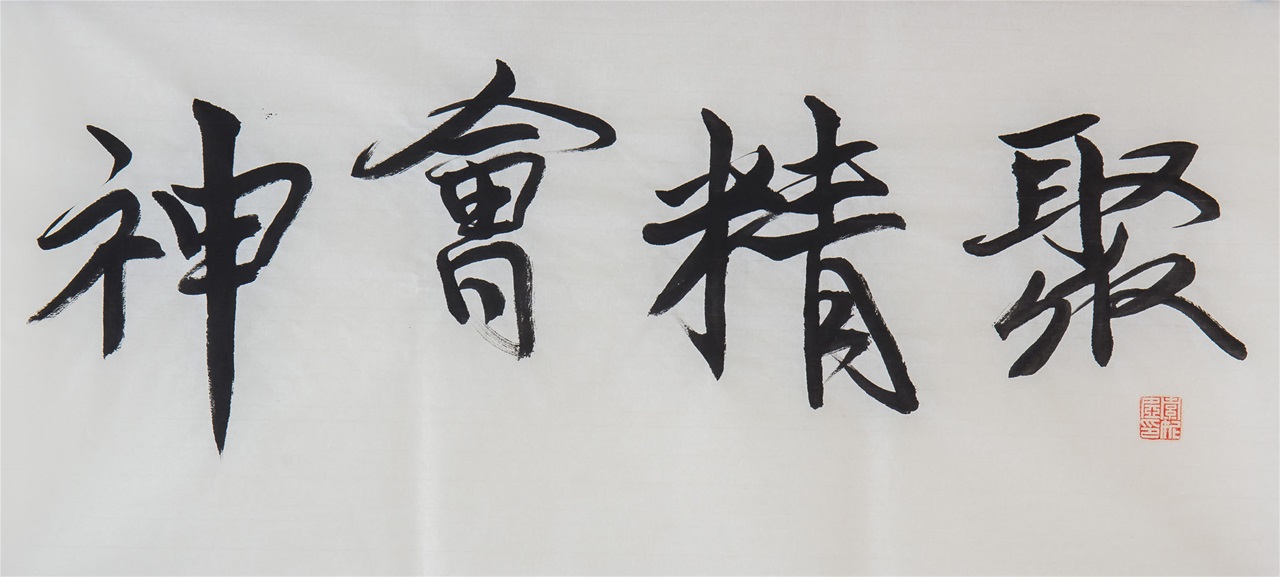 聚精會神